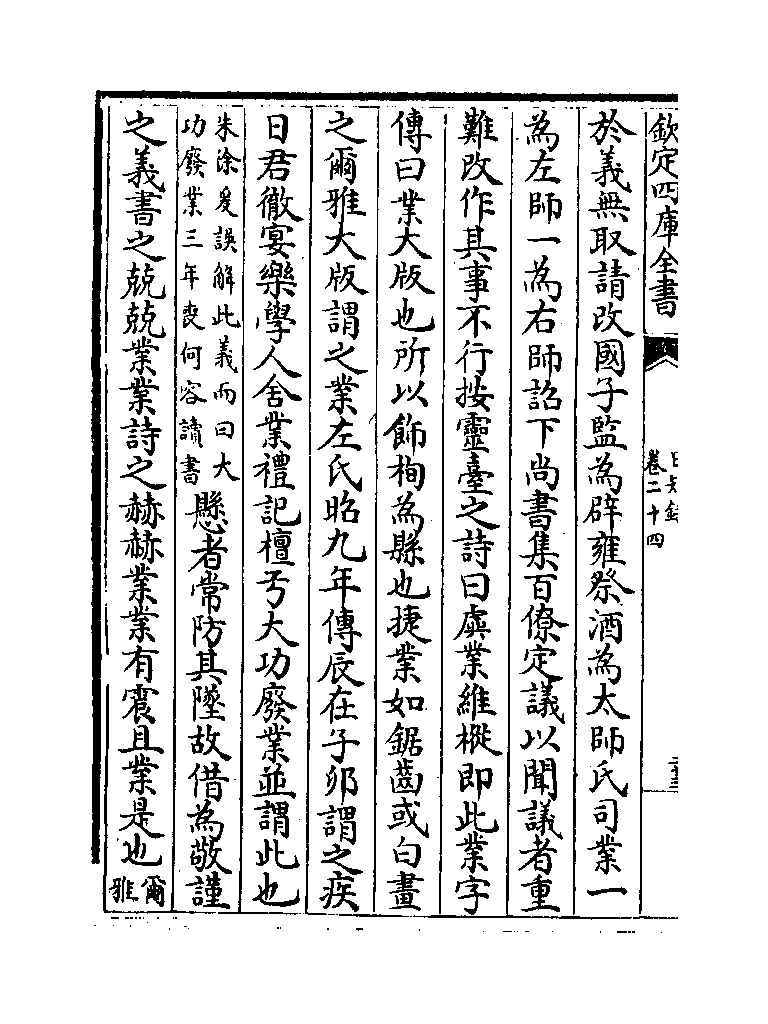 欽定四庫全書
日知錄
卷二十四
於義無取請改國子監為辟雍祭酒為太師氏司業一
為左師一為右師詔下尚書集百僚定議以聞議者重
難改作其事不行按靈臺之詩曰虡業維樅即此業字
傳曰業大版也所以飾栒為縣也捷業如鋸齒或白畫
之爾雅大版謂之業左氏昭九年傳辰在子卯謂之疾
日君徹宴樂學人舍業禮記檀弓大功廢業並謂此也
朱滌爰誤解此義而曰大
功廢業三年喪何容讀書
懸者常防其墜故借為敬謹
之義書之兢兢業業詩之赫赫業業有震且業是也
爾
雅